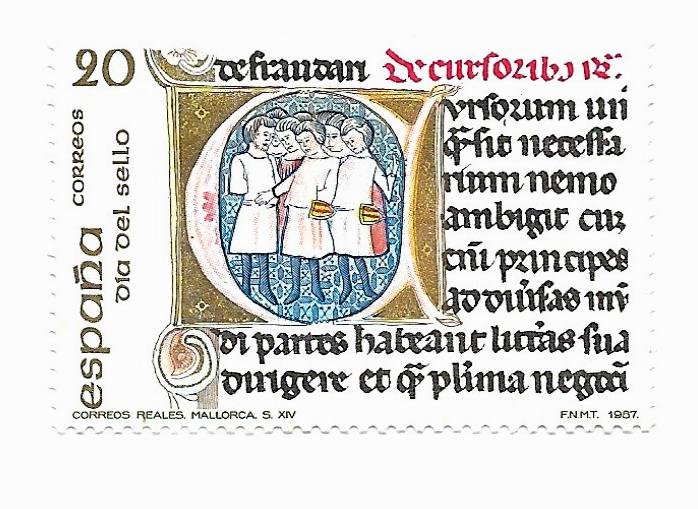 20
CORREOS
españa
día del sello
defraudari De cursorib⁹ R̃.
Cursorum uii
q̃ sit necessa
rium nemo
ambigit cuȝ
cũ principes
ad diũsas mũ
di partes habeant lit̃as sua
dirigere et q̃ plima negoci
CORREOS REALES. MALLORCA. S. XIV
F.N.M.T. 1987.